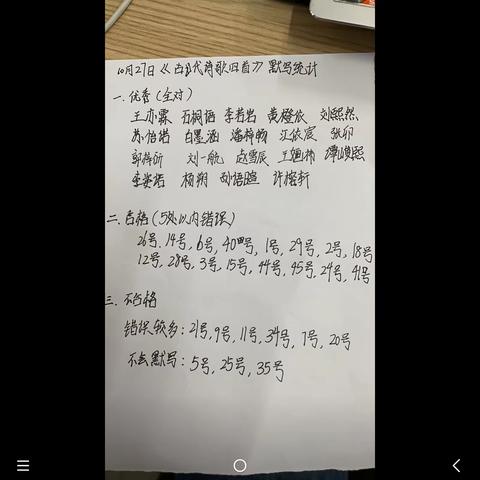 10月27日《古代诗歌四首》默写统计
一.优秀(全对)
王亦霖 石桐语 李若岩 黄橙依 刘熙然
苏怡诺 白墨涵 潘梓畅 江依宸 张卯
郭梓忻 刘一航 赵雪辰 王 谭峻熙
杨朔 语暄 许榕轩
二.合格(5处以内错误)
26号,14号,6号,40号,1号,29号,2号,18号
12号,28号,3号,15号,44号,45号,24号,41号
三.不合格
错误较多:21号,9号,11号,34号,7号,20号
不会默写:5号,25号,35号